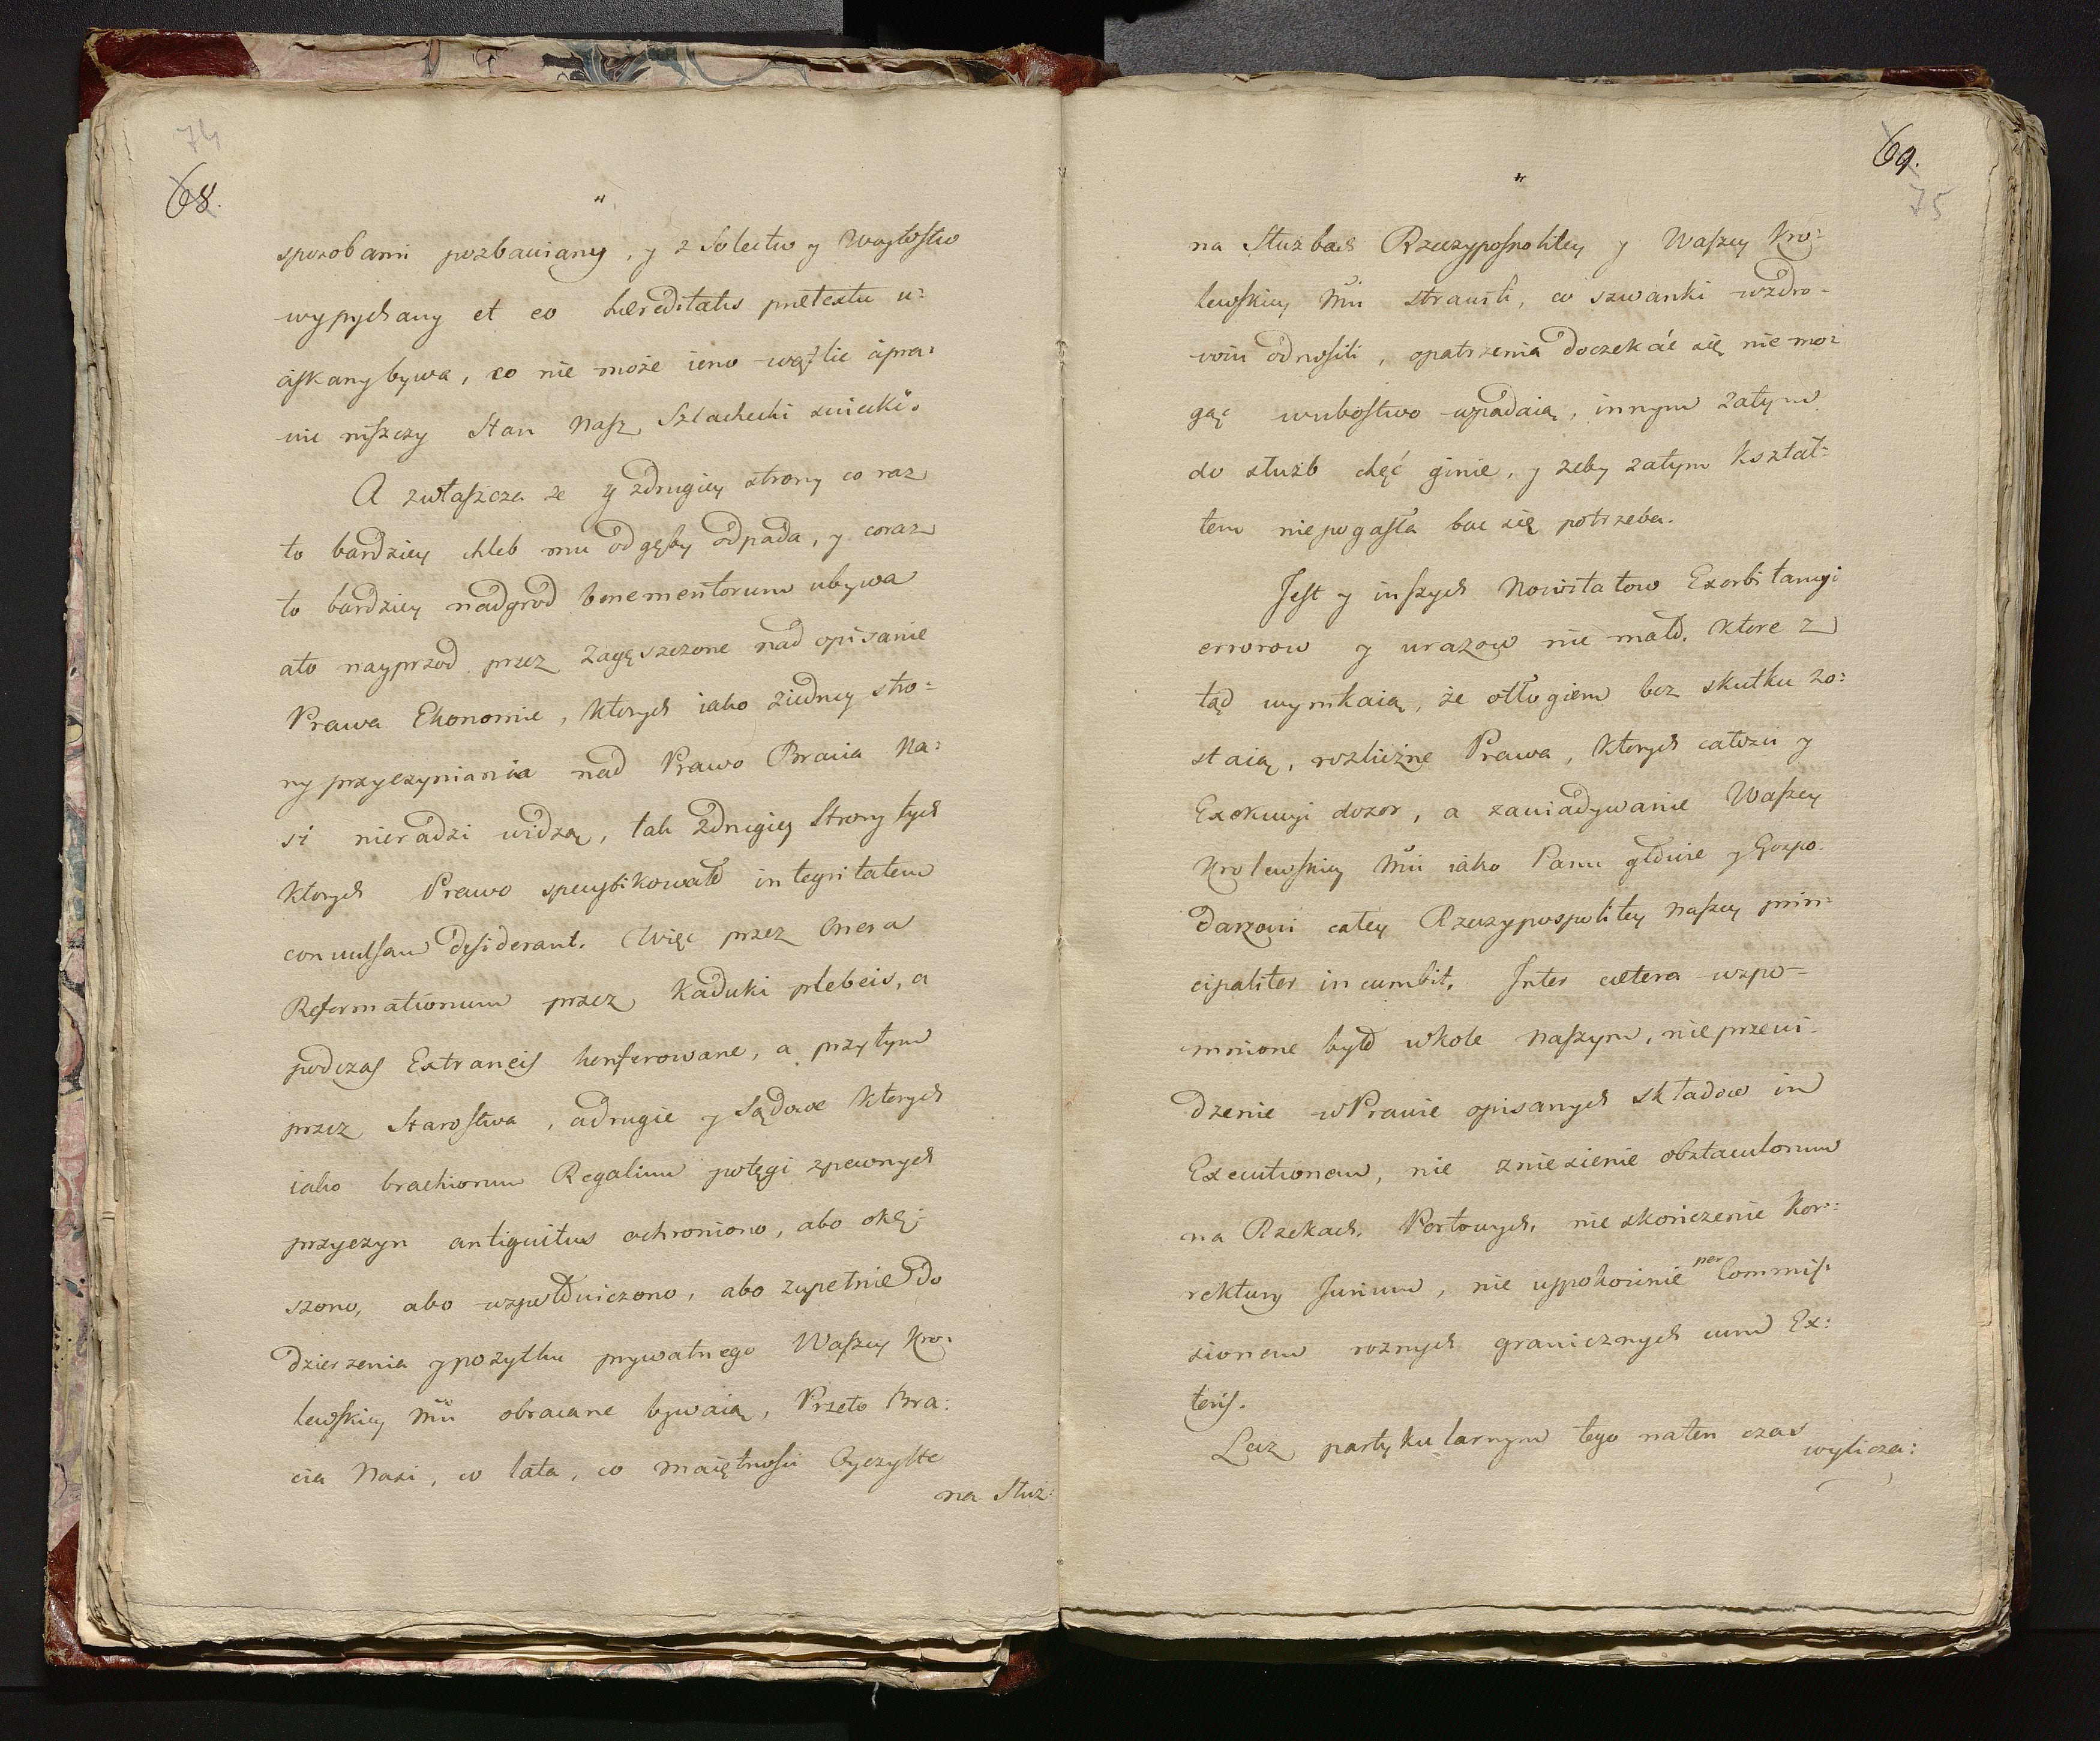 74
68.
"
sposobami pozbawiany, y z Solectw y Woytostw
wypychany et eo hereditatis prætextu u=
ciskany bywa, co nie może ieno wątlić ipra:
wie niszczy Stan Nasz Szlachecki swiecki.
A zwłaszcza ze y zdrugiey strony co raz
to bardziey chleb mu od gęby odpada, y coraz
to bardziey nadgrod benemeritorum ubywa
ato nayprzod przez zagęszczone nad opisanie
Prawa Ekonomie, ktorych iako ziedney stro=
ny przyczyniania nad Prawo Bracia Na:
si nieradzi widzą, tak zdrugiey Strony tych
ktorych Prawo specyfikowało integritatem
convulsam desiderant. Więc przez Onera
Reformationum przez Kaduki plebeis, a
podczas Extraneis konferowane, a przytym
przez Starostwa, adrugie y Sądowe ktorych
iako brachiorum Regalium potęgi zpewnych
przyczyn antiquitus ochroniono, abo okię:
szono, abo wspołuiczono, abo zupełnie do
dzierzenia ypozytku prywatnego Waszey Kro:
lewskiey Mci obracane bywaią, Przeto Bra:
cia Nasi, co lata, co maiętnosci Oyczyste
na Słuz:
69.
75
"
na Służbach Rzeczypospolitey y Waszey Kro:
lewskiey Mci strawili, co szwanki wzdro-
wiu odnosili, opatrzenia doczekać się nie mo:
gąc wubostwo wpadaią, innym zatym
do służb chęć ginie, y zeby zatym kształ=
tem niepogasła bac się potrzeba.
Jest y inszych Nowitatow Exorbitancyi
errorow y urazow nie mało. ktore z
tąd wynikaią, że odłogiem bez skutku zo:
staią, rozliczne Prawa, ktorych całosci y
Exekucyi dozor, a zawiadywanie Waszey
Krolewskiey Mci iako Panu głowie y Gospo-
darzowi całey Rzeczypospolitey naszey prin=
cipaliter incumbit. Inter cætera wspo=
mnione było wkole Naszym, nie przewi-
dzenie wPrawie opisanych składow in
Executionem, nie zniesienie obstaculorum
na Rzekach Portowych, nie skończenie Kor=
rektury Jurium, nie uspokoienie per Commis:
sionem roznych granicznych cum Ex:
teris.
Lecz partykularnym tego naten czas
wylicza: